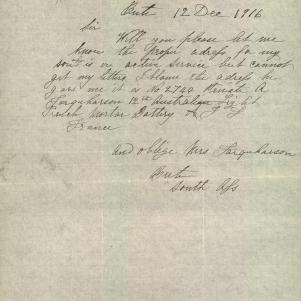 Bute 12 Dec 1916
Sir
Will you please let me
know the proper adress for my
son he is on active service but cannot
get my letters I blame the adress he
gave me it is No 2740 Private A
Farquharson 12th Australian Light
Trench Mortar Battery A I F
France
and oblige Mrs Farquharson
Bute
South Aus